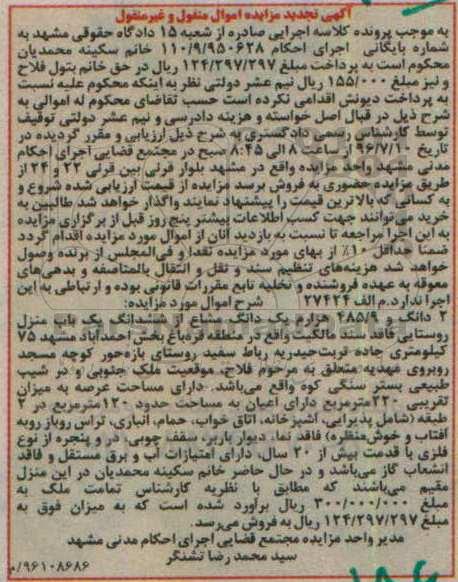 آگهی تجدید مزایده اموال منقول و غیرمنقول
به موجب پرونده کلاسه اجرایی صادره از شعبه ۱۵ دادگاه حقوقی مشهد به
شماره بایگانی اجرای احکام ۱۱۰/۹/۹۵۰۶۲۸ خانم سکینه محمدیان
محکوم است به پرداخت مبلغ ۱۲۴/۲۹۷/۲۹۷ ریال در حق خانم بتول فلاح
و نیز مبلغ ۱۵۵/۰۰۰ ریال نیم عشر دولتی نظر به اینکه محکوم علیه نسبت
به پرداخت دیونش اقدامی نکرده است حسب تقاضای محکوم له اموالی به
شرح ذیل در قبال اصل خواسته و هزینه دادرسی و نیم عشر دولتی توقیف
توسط کارشناس رسمی دادگستری به شرح ذیل ارزیابی و مقرر گردیده در
تاریخ ۹۶/۷/۱۰ از ساعت ۸ الی ۸:۴۵ صبح در مجتمع قضایی اجرای احکام
مدنی مشهد واحد مزایده واقع در مشهد بلوار قرنی بین قرنی ۲۲ و ۲۴ از
طریق مزایده حضوری به فروش برسد مزایده از قیمت ارزیابی شده شروع و
به کسانی که بالاترین قیمت را پیشنهاد نمایند واگذار خواهد شد طالبین به
خرید می‌توانند جهت کسب اطلاعات بیشتر پنج روز قبل از برگزاری مزایده
به این اجرا مراجعه تا نسبت به بازدید آنان از اموال مورد مزایده اقدام گردد
ضمنا حداقل ۱۰٪ از بهای مورد مزایده نقدا و فی‌المجلس از برنده وصول
خواهد شد هزینه‌های تنظیم سند و نقل و انتقال بالمناصفه و بدهی‌های
معوقه به عهده فروشنده و تخلیه تابع مقررات قانونی بوده و ارتباطی به این
اجرا ندارد.م الف ۲۷۴۲۴ شرح اموال مورد مزایده:
۲ دانگ و ۴۸۵/۹ هزارم یک دانگ مشاع از ششدانگ یک باب منزل
روستایی فاقد سند مالکیت واقع در منطقه قره‌باغ بخش احمدآباد مشهد ۷۵
کیلومتری جاده تربت‌حیدریه رباط سفید روستای بازه‌حور کوچه مسجد
روبروی مهدیه متعلق به مرحوم فلاح، موقعیت ملک جنوبی و در شیب
طبیعی بستر سنگی کوه واقع می‌باشد. دارای مساحت عرصه به میزان
تقریبی ۲۲۰مترمربع دارای اعیان به مساحت حدود ۱۲۰مترمربع در ۲
طبقه (شامل پذیرایی، آشپزخانه، اتاق خواب، حمام، انباری، تراس روباز روبه
آفتاب و خوش‌منظره) فاقد نما، دیوار باربر، سقف چوبی، در و پنجره از نوع
فلزی با قدمت بیش از ۲۰ سال، دارای امتیازات آب و برق مستقل و فاقد
انشعاب گاز می‌باشد و در حال حاضر خانم سکینه محمدیان در این منزل
مقیم می‌باشند که مطابق با نظریه کارشناس تمامت ملک به
مبلغ ۳۰۰/۰۰۰/۰۰۰ ریال برآورد شده است که به میزان فوق به
مبلغ ۱۲۴/۲۹۷/۲۹۷ ریال به فروش می‌رسد.
مدیر واحد مزایده مجتمع قضایی اجرای احکام مدنی مشهد
سید محمد رضا تشنگر
۹۶۱۰۸۶۸۶/م